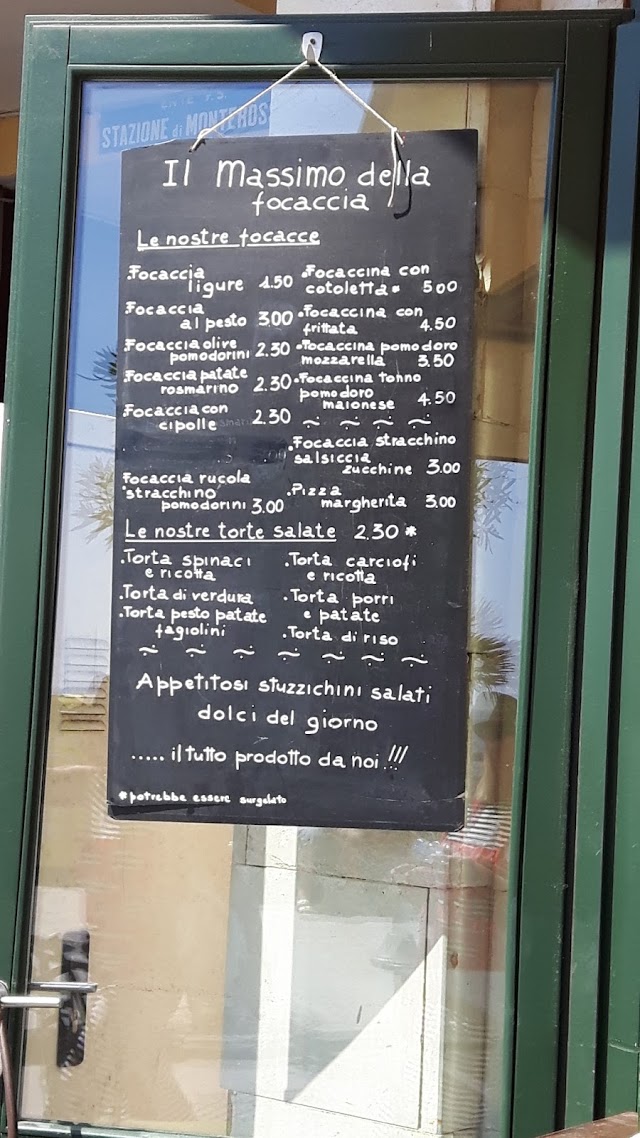 ENTE F.S.
STAZIONE di MONTEROSS
Il Massimo della
focaccia
Le nostre focacce
.Focaccia
ligure 1.50
.Focaccia
al pesto 3.00
.Focaccia olive
pomodorini 2.30
.Focaccia patate
rosmarino 2.30
.Focaccia con
cipolle 2.30
Focaccia rucola
stracchino
pomodorini 3.00
.Focaccina con
cotoletta* 5.00
.Focaccina con
frittata 4.50
.Focaccina pomodoro
mozzarella 3.50
.Focaccina tonno
pomodoro
maionese 4.50
~ ~ ~ ~
.Focaccia stracchino
salsiccia
zucchine 3.00
.Pizza
margherita 3.00
Le nostre torte salate 2.30 *
.Torta spinaci
e ricotta
.Torta di verdura
.Torta pesto patate
fagiolini
.Torta carciofi
e ricotta
.Torta porri
e patate
.Torta di riso
~ ~ ~ ~ ~ ~ ~
Appetitosi stuzzichini salati
dolci del giorno
..... il tutto prodotto da noi !!!
*potrebbe essere surgelato